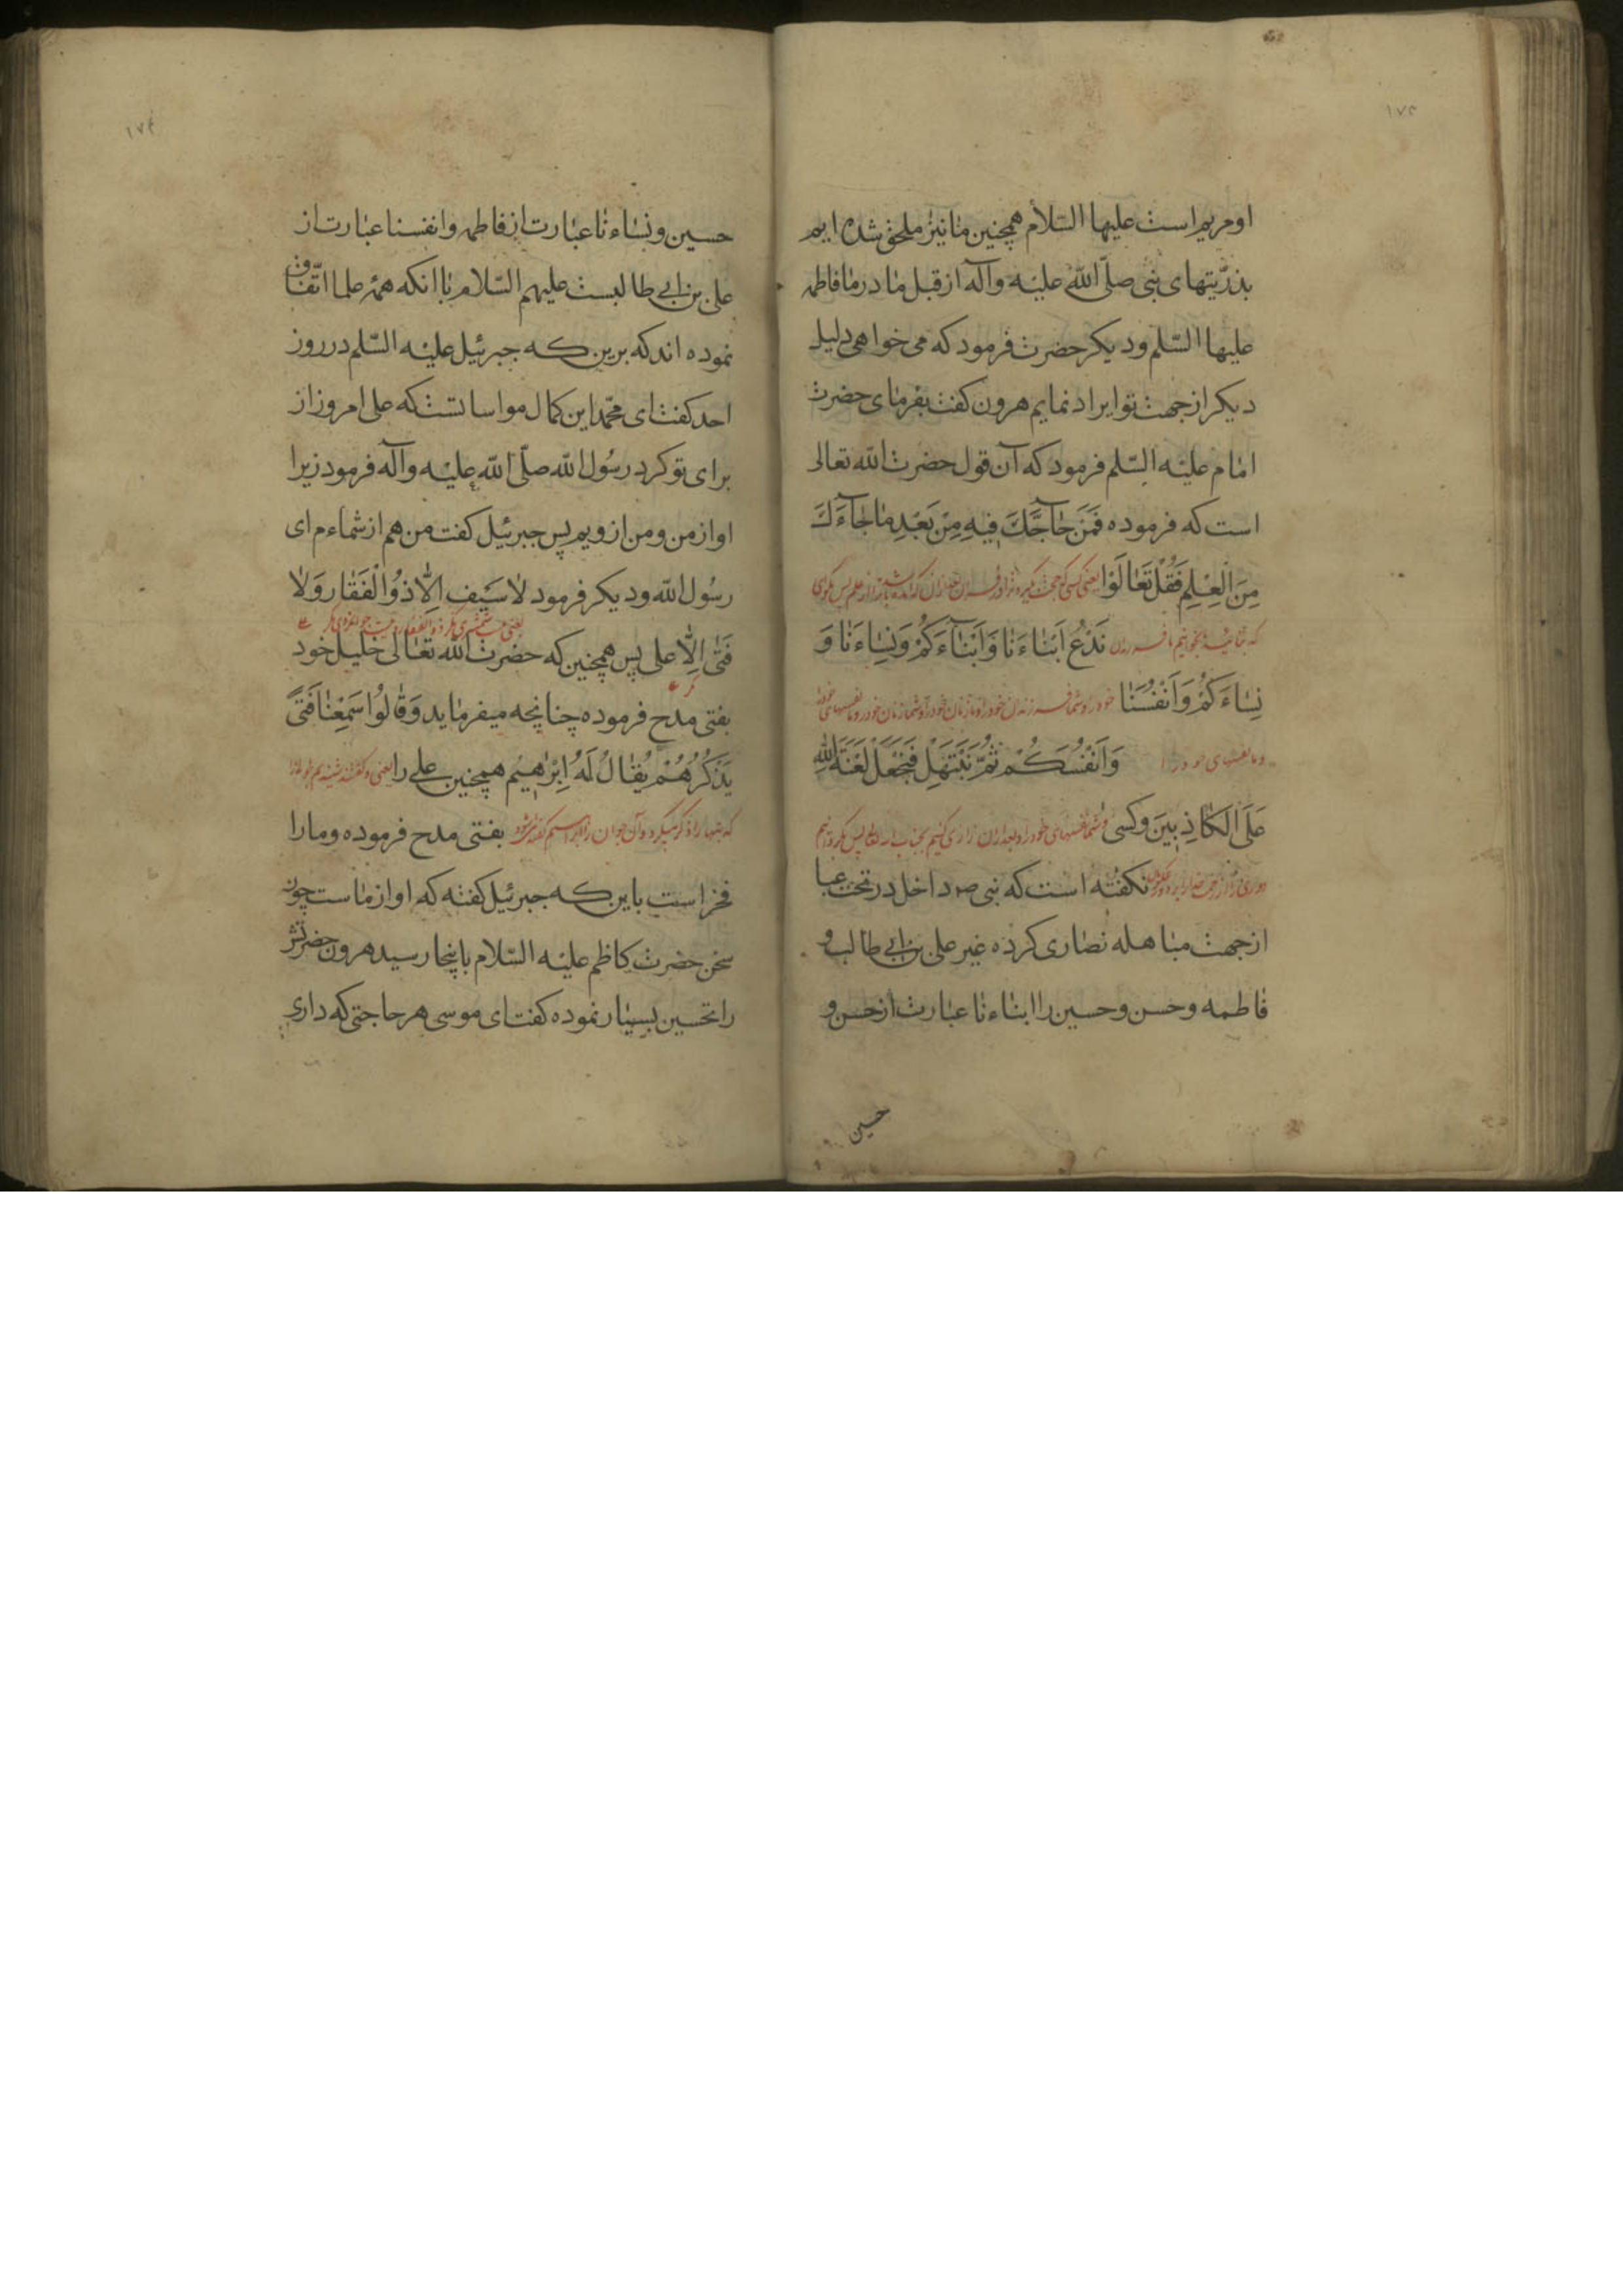 ۱۷۳
او مریم است علیها السّلام همچنین ما نیز ملحق شده ایم
بذرّیتهای نبی صلّی الله علیه وآله از قبل ما در ما فاطمه
علیها السّلم و دیکر حضرت فرمود که می خواهی دلیل
دیکر از جهت تو ایراد نمایم هرون کفت بفرمای حضرت
امام علیه السّلم فرمود که آن قول حضرت الله تعالی
است که فرموده فَمَنْ حَآجَّكَ فِیهِ مِنْ بَعْدِ مَا جَآءَكَ
مِنَ الْعِلِمِ فَقُلْ تَعَالَوْا یعنی کسی که حجت کیرد ترا در
که بیائید بخوانیم ما نَدْعُ اَبْنَاءَنَا وَاَبْنَآءَكُمْ وَنِسَاءَنَا وَ
نِسَاءَكُمْ وَاَنْفُسَنَا خود را و شما فرزندان خود را و ما زنان خود را و شما زنان خود را و ما نفسهای خود را
و ما نفسهای خود را وَاَنْفُسَكُمْ ثُمَّ نَبْتَهِلْ فَنَجْعَلْ لَعْنَةَ اللهِ
عَلَی الْكَاذِبِینَ و کسی و شما نفسهای خود را و بعد ازان زاری کنیم بجناب
نکفته است که نبی ص داخل در تحت عبا
از جهت مباهله نصاری کرده غیر علی بن ابی طالب و
فاطمه و حسن و حسین را ابناءنا عبارت از حسن و
حسین
۱۷۴
حسین و نساءنا عبارت از فاطمه وانفسنا عبارت از
علی بن ابی طالبست علیهم السّلام با انکه همه علما اتّفاق
نموده اند که برین که جبرئیل علیه السّلم در روز
احد کفت ای محمّد این کمال مواساتست که علی امروز از
برای تو کرد رسُول الله صلّی الله علیه وآله فرمود زیرا
او از من و من از ویم پس جبرئیل کفت من هم از شماءم ای
رسُول الله و دیکر فرمود لا سَیفَ اِلّا ذُوالْفَقَار وَلا
یعنی نیست شمشیری مکر ذوالفقار و نیست جوانمردی مکر
فَتٰی اِلّا علی پس همچنین که حضرت الله تعالی خلیل خود
بفتی مدح فرموده چنانچه میفرماید وَقَالُوا سَمِعْنَا فَتًی
یَذْكُرُهُمْ یُقَالُ لَهُ اِبْرٰهِیم همچنین علی را یعنی و کفتند شنیدیم جوانی را
که بتها را ذکر میکرد و آن جوان را ابراهیم کفته میشود بفتی مدح فرموده و ما را
فخر است باین که جبرئیل کفته که او از ماست چون
سخن حضرت کاظم علیه السّلام باینجا رسید هرون حضرتش
را تحسین بسیار نموده کفت ای موسی هر حاجتی که داری